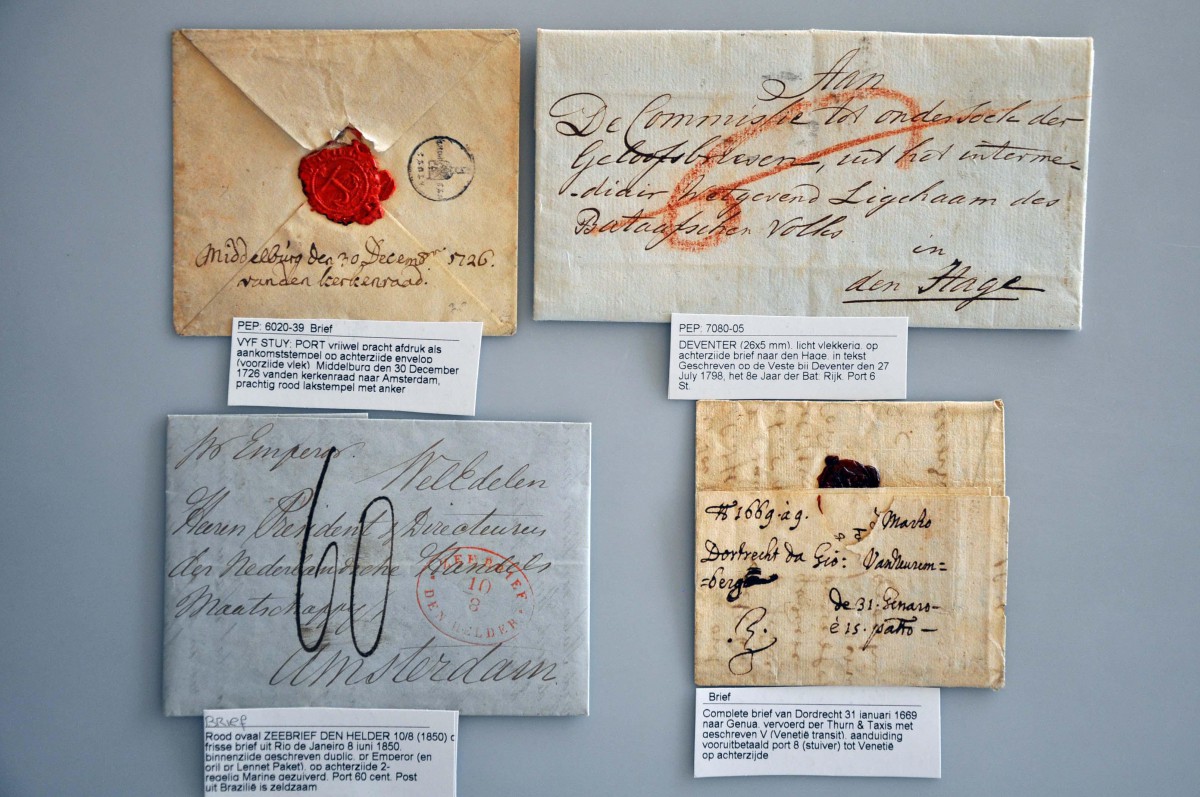 Middelburg den 30 December 1726.
van den kerkenraad.
PEP: 6020-39 Brief
VYF STUY: PORT vrijwel pracht afdruk als
aankomststempel op achterzijde envelop
(voorzijde vlek). Middelburg den 30 December
1726 vanden kerkenraad naar Amsterdam,
prachtig rood lakstempel met anker
Aan
De Commissie tot onderzoek der
Geloofsbrieven, uit het interme-
-diair Wetgevend Ligchaam des
Bataafschen Volks
in
den Hage
6
PEP: 7080-05
DEVENTER (26x5 mm), licht vlekkerig, op
achterzijde brief naar den Hage, in tekst
Geschreven op de Veste bij Deventer den 27
July 1798, het 8e Jaar der Bat: Rijk. Port 6
St.
pr Emperor.
WelEdelen
Heeren President & Directeuren
der Nederlandsche Handels
Maatschappy
Amsterdam.
60
ZEEBRIEF
10/8
DEN HELDER
Brief
Rood ovaal ZEEBRIEF DEN HELDER 10/8 (1850)
frisse brief uit Rio de Janeiro 8 juni 1850,
binnenzijde geschreven duplic. pr Emperor (en
oril pr Lennet Paket), op achterzijde 2-
regelig Marine gezuiverd. Port 60 cent. Post
uit Brazilië is zeldzaam
1669
Marko
Dortrecht da Gio: Van Neurem=
=berg
de 31. Genaro-
é 15.
Brief
Complete brief van Dordrecht 31 januari 1669
naar Genua, vervoerd per Thurn & Taxis met
geschreven V (Venetië transit), aanduiding
vooruitbetaald port 8 (stuiver) tot Venetië
op achterzijde